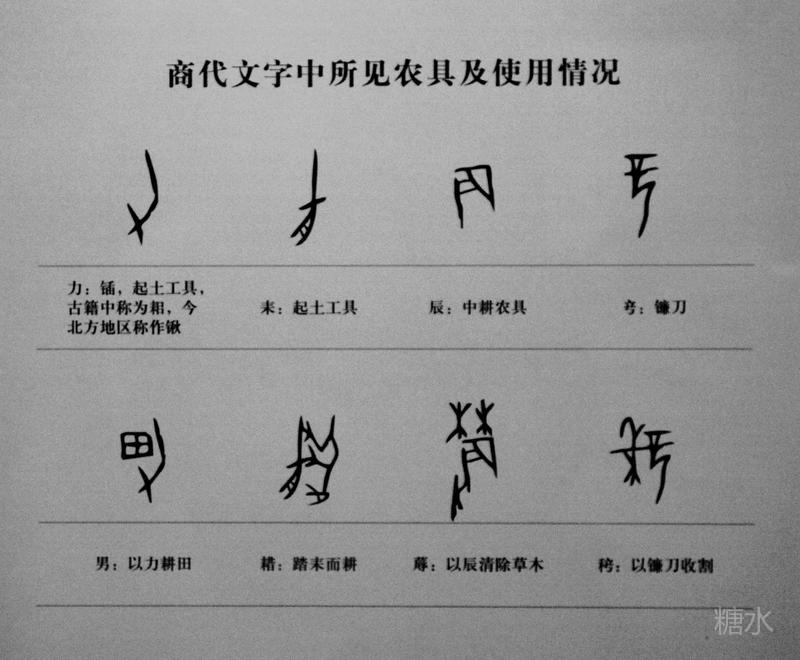 商代文字中所见农具及使用情况
力：锸，起土工具，
古籍中称为耜，今
北方地区称作锹
耒：起土工具
辰：中耕农具
：镰刀
男：以力耕田
耤：踏耒而耕
蓐：以辰清除草木
：以镰刀收割
糖水